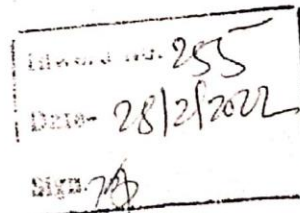 Inward no. 255
Date- 28/2/2022
Sign.